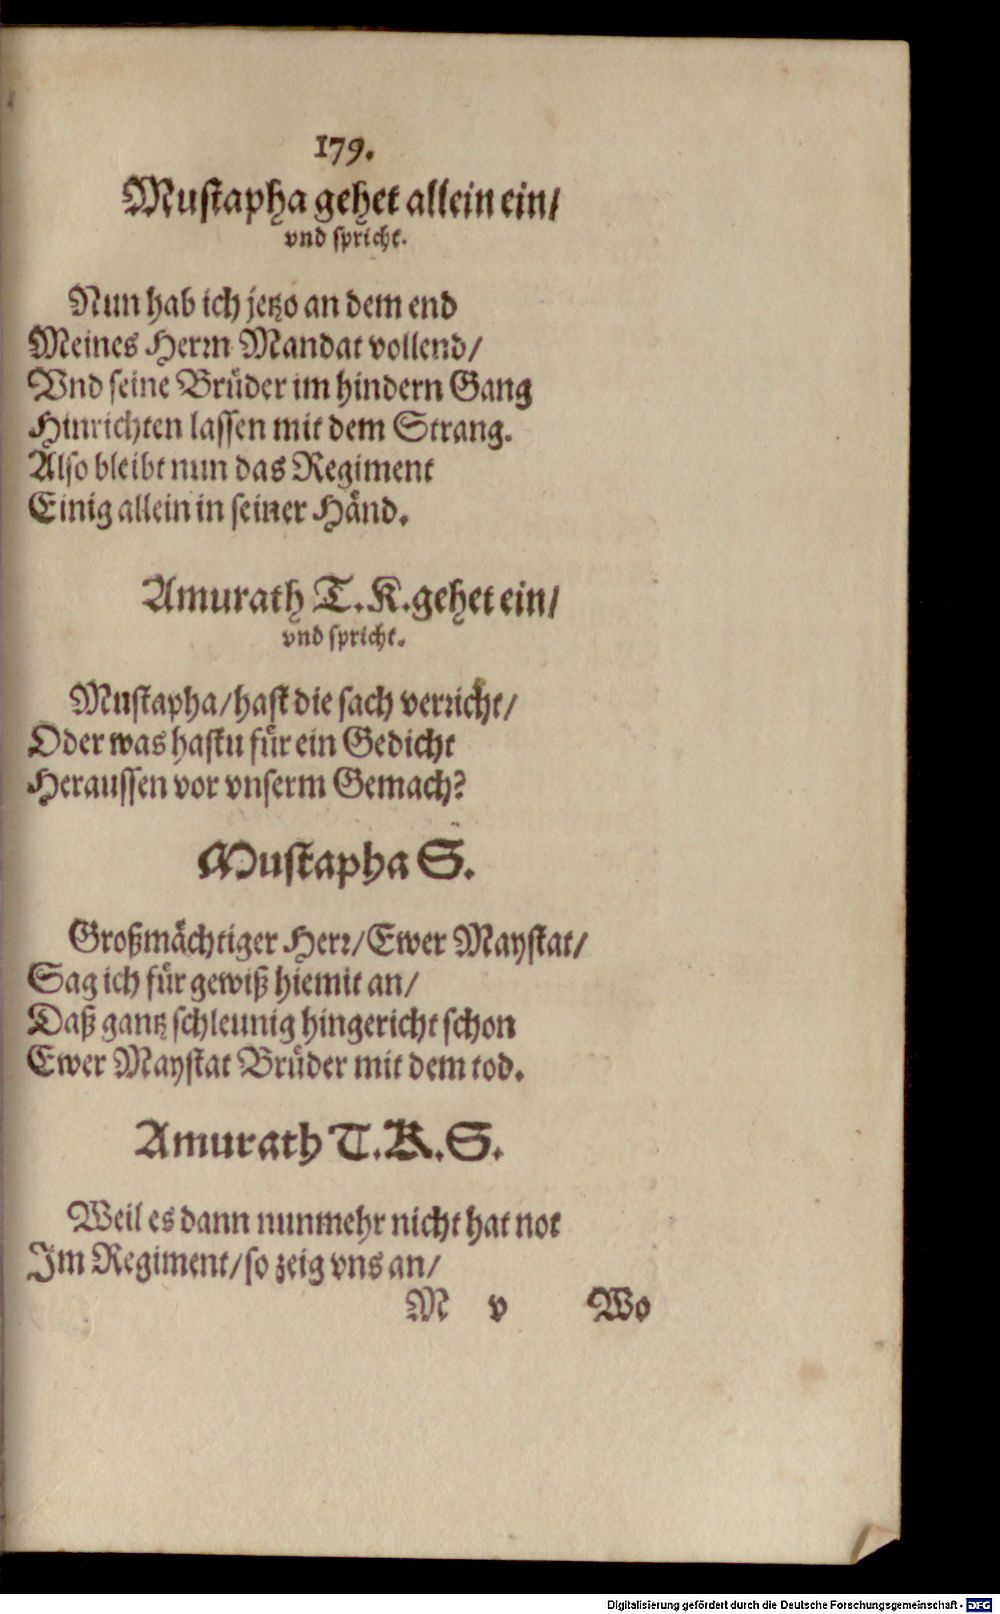 179.
Mustapha gehet allein ein/
vnd spricht.
Nun hab ich jetzo an dem end
Meines Herrn Mandat vollend/
Vnd seine Brüder im hindern Gang
Hinrichten lassen mit dem Strang.
Also bleibt nun das Regiment
Einig allein in seiner Händ.
Amurath T. K. gehet ein/
vnd spricht.
Mustapha/ hast die sach verricht/
Oder was hastu für ein Gedicht
Heraussen vor vnserm Gemach?
Mustapha S.
Großmächtiger Herr/ Ewer Maystat/
Sag ich für gewiß hiemit an/
Daß gantz schleunig hingericht schon
Ewer Maystat Brüder mit dem tod.
Amurath T. K. S.
Weil es dann nunmehr nicht hat not
Im Regiment/ so zeig vns an/
M v Wo
Digitalisierung gefördert durch die Deutsche Forschungsgemeinschaft - DFG